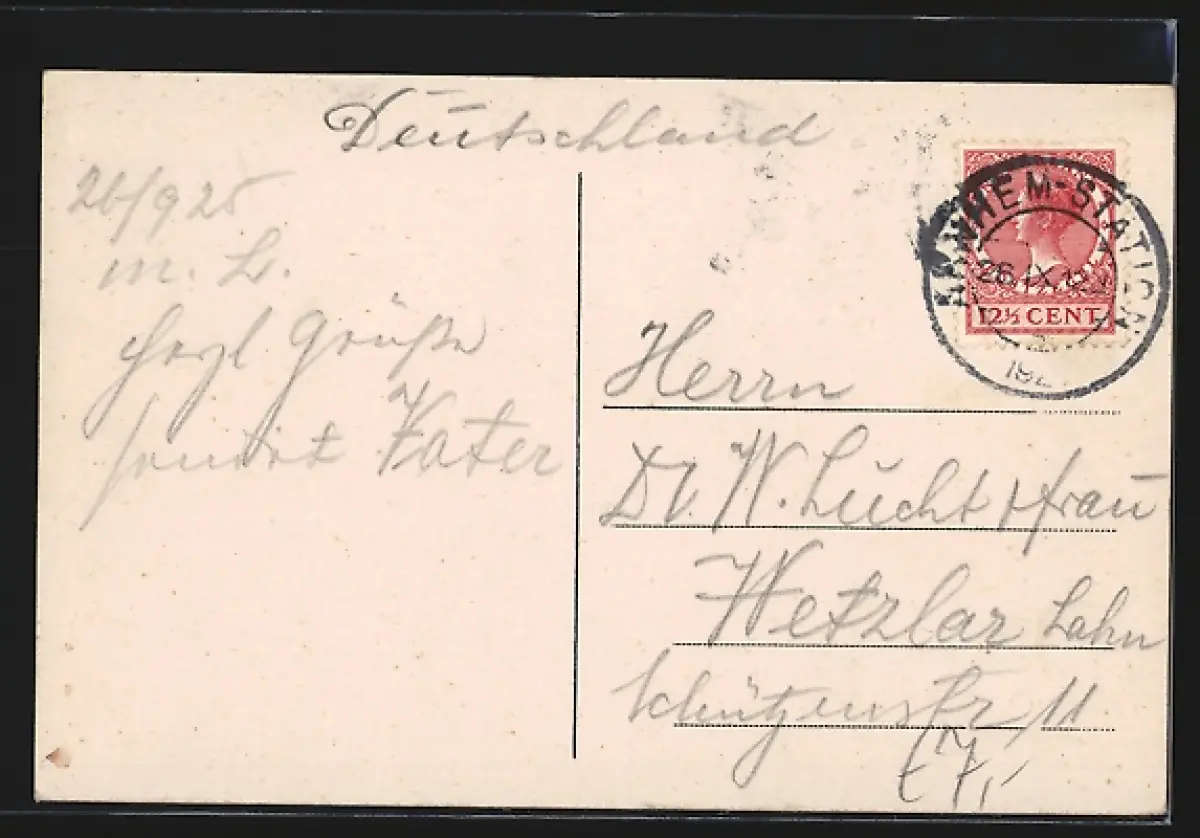 Deutschland
26/9 25
m. L.
Herzl Grüße
sendet Vater
ARNHEM-STATION
26.IX.12
192
12½ CENT
Herrn
Dr. W. Lucht + Frau
Wetzlar Lahn
Schützenstr 11